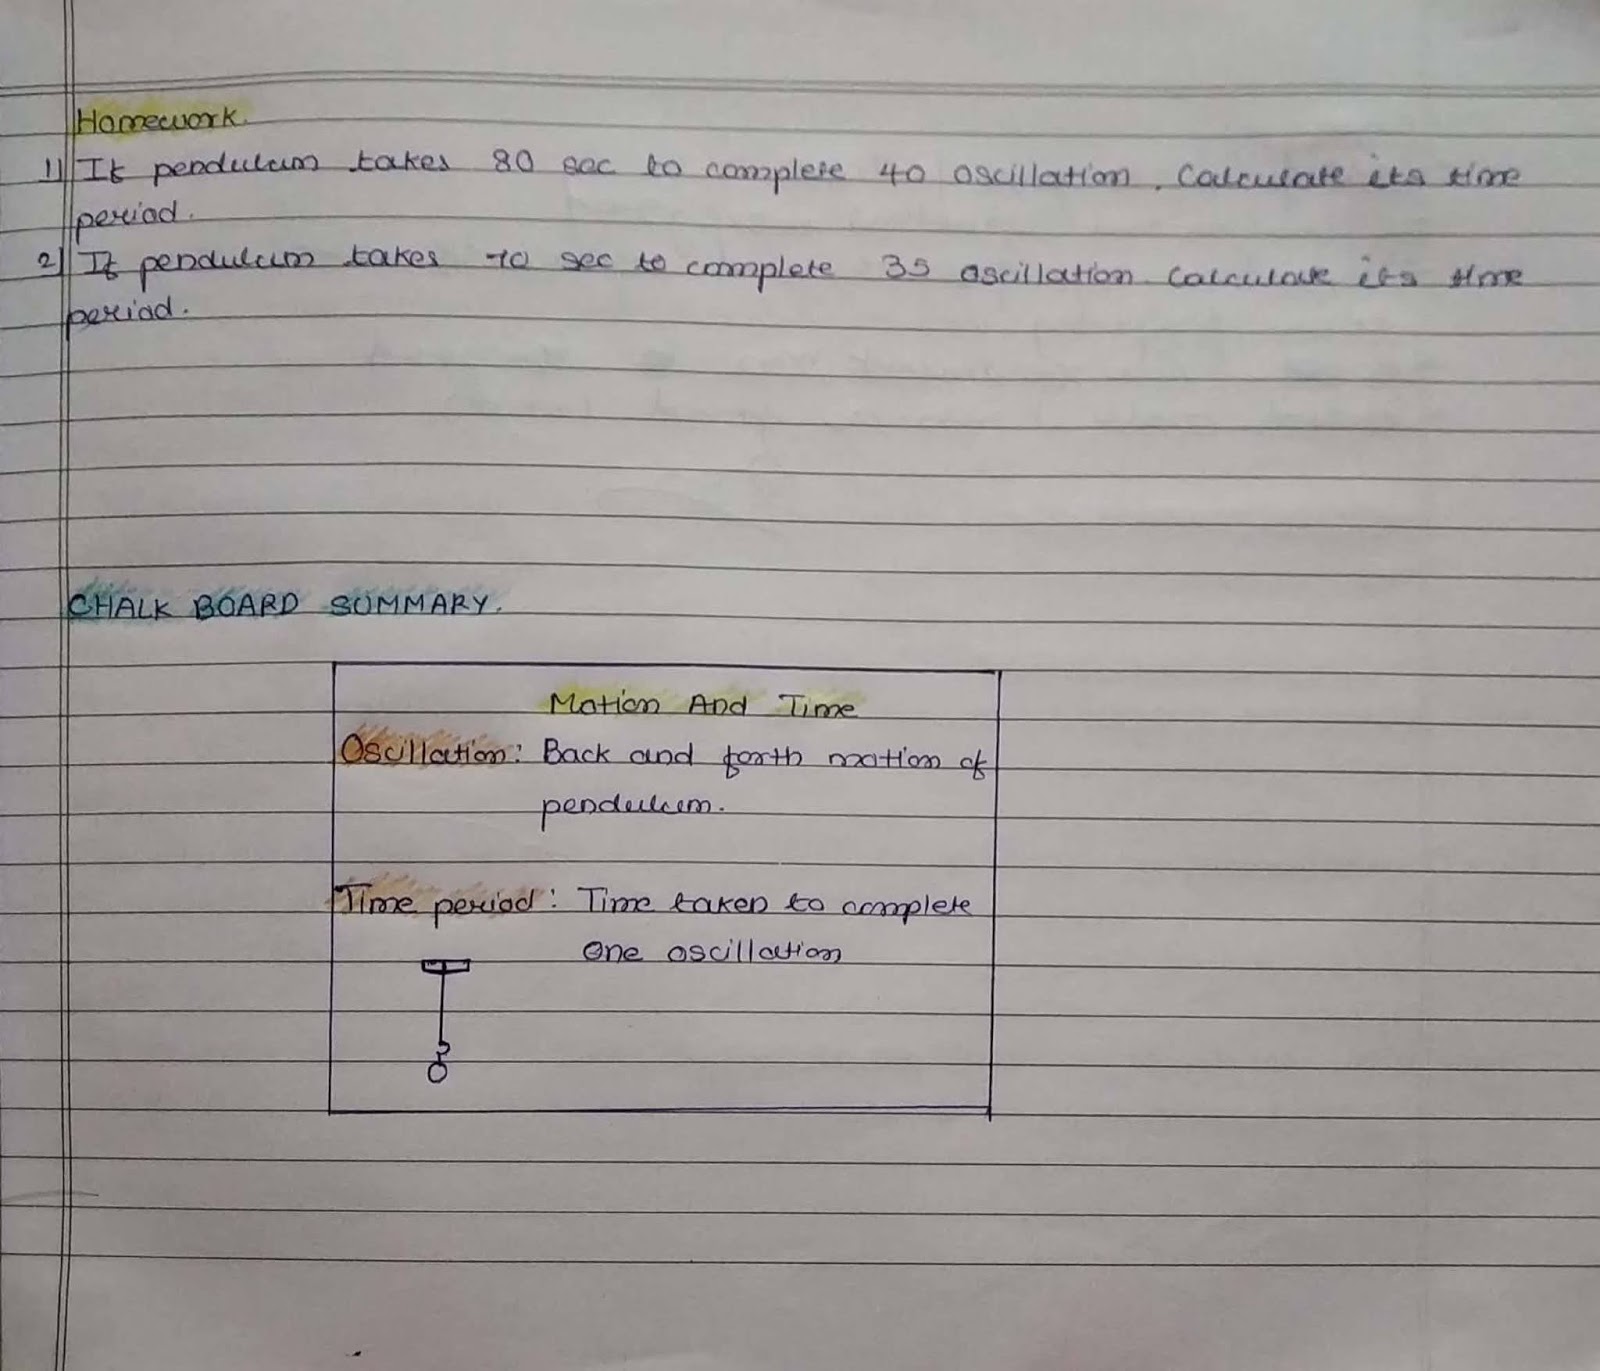 Homework.
1) If pendulum takes 80 sec to complete 40 oscillation. Calculate its time
period.
2) If pendulum takes 70 sec to complete 35 oscillation. Calculate its time
period.
CHALK BOARD SUMMARY.
Motion And Time
Oscillation: Back and forth motion of
pendulum.
Time period: Time taken to complete
One oscillation